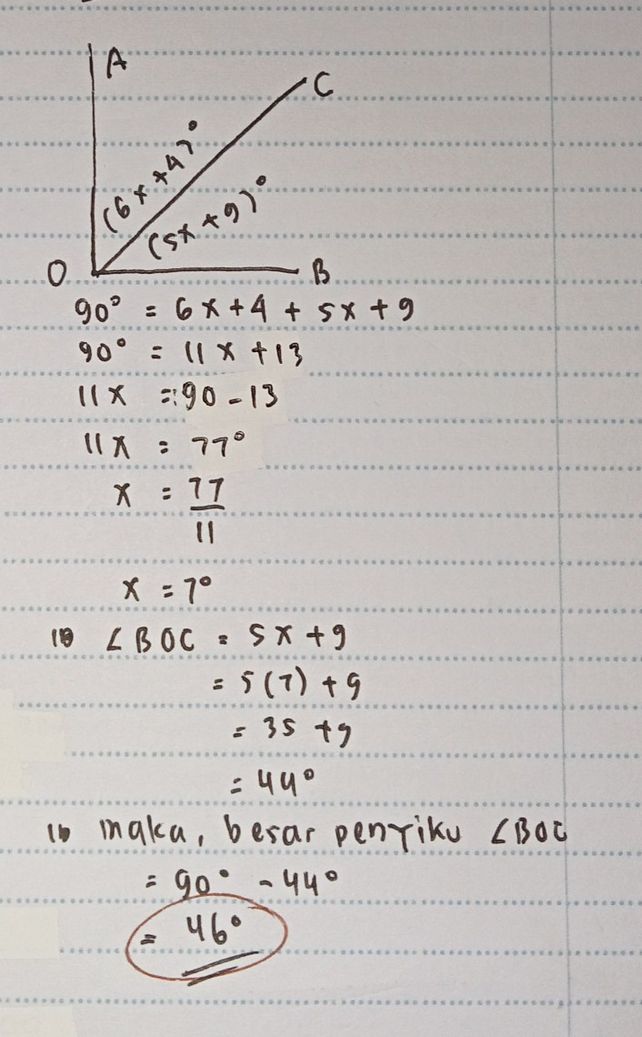 A
C
(6x+4)°
(5x+9)°
O
B
90° = 6x+4 + 5x+9
90° = 11x +13
11x = 90-13
11x = 77°
x = 77
11
x = 7°
∠BOC = 5x+9
= 5(7) +9
= 35 +9
= 44°
maka, besar penyiku ∠BOC
= 90° - 44°
= 46°